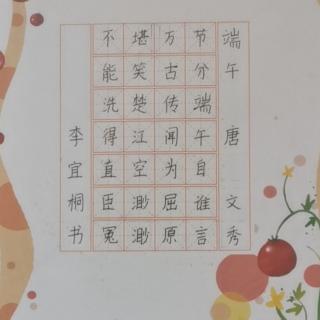 端午 唐 文秀
节分端午自谁言
万古传闻为屈原
堪笑楚江空渺渺
不能洗得直臣冤
李宜桐书